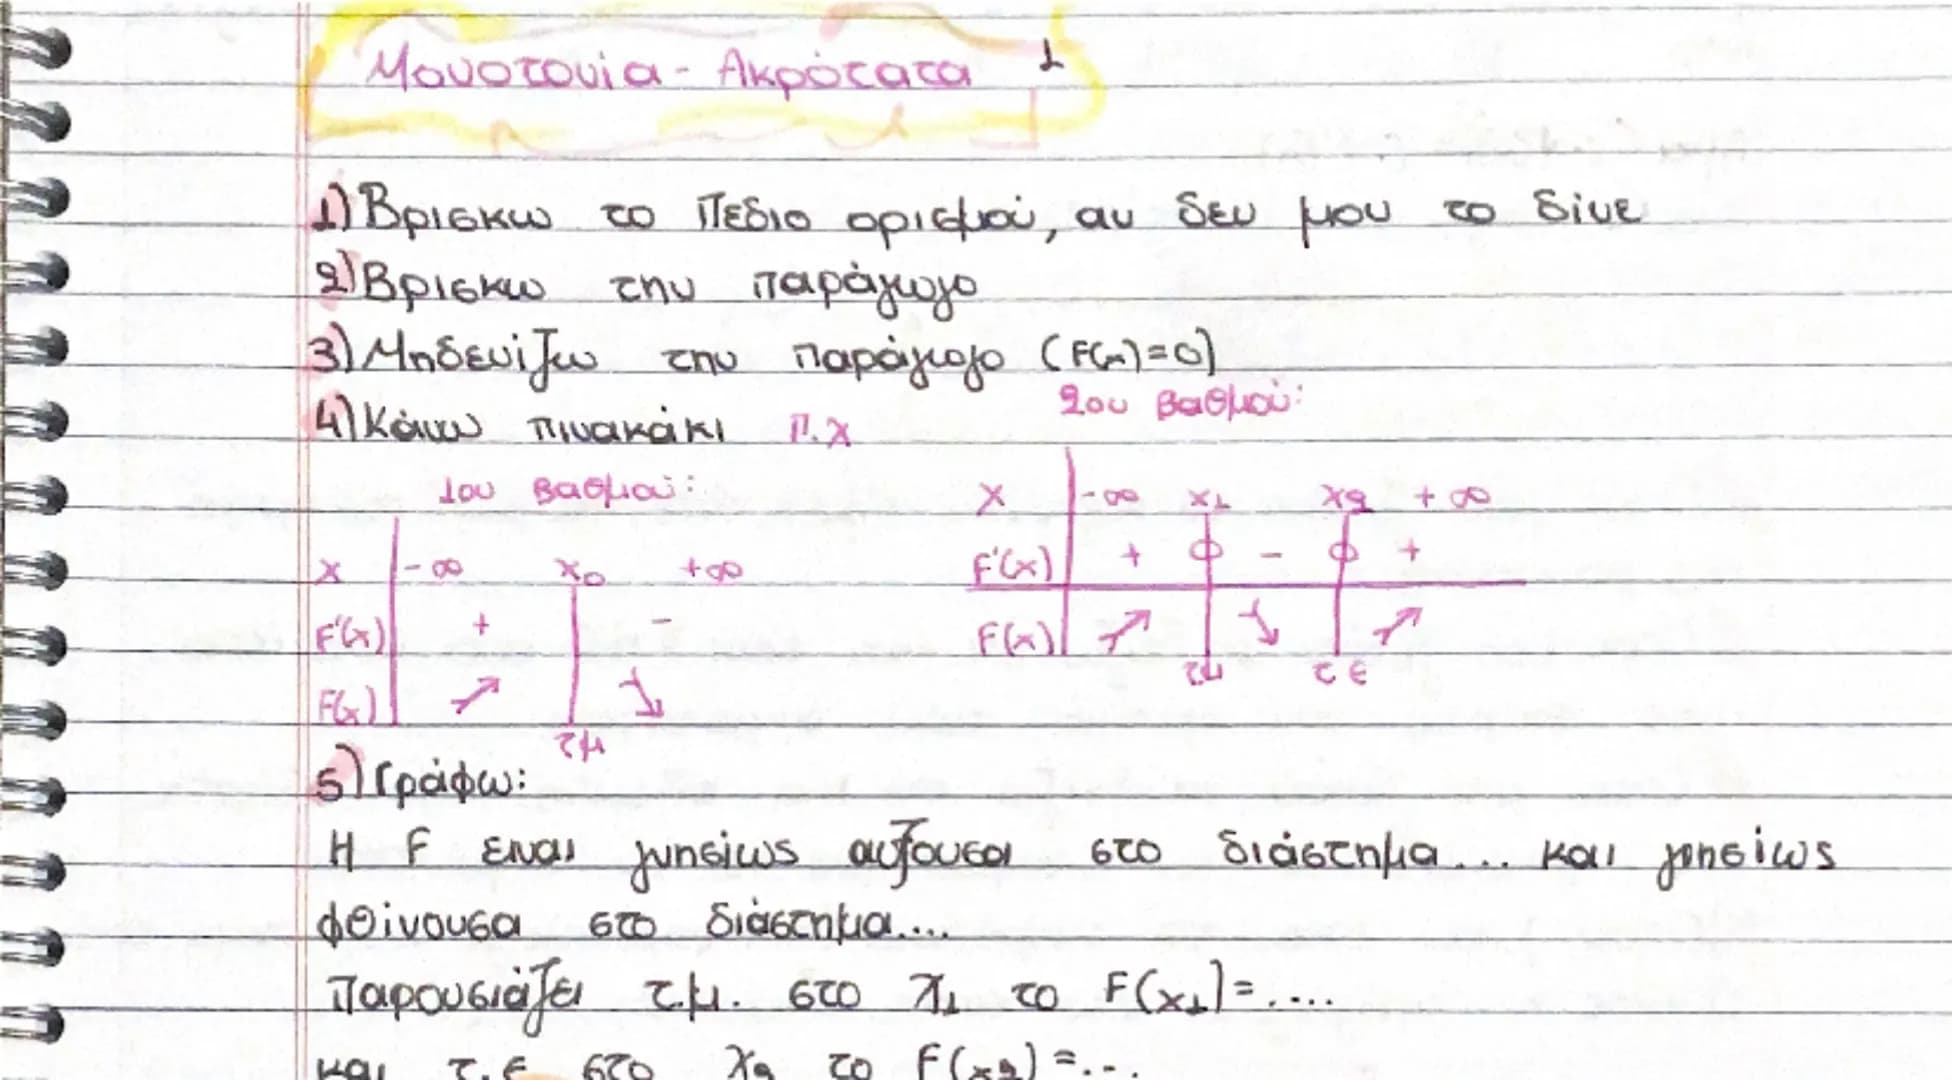 Μονοτονία - Ακρότατα 1
1) Βρισκω το πεδιο ορισμού, αν δεν μου το δίνε
2) Βρισκω την παράγωγο
3) Μηδενίζω την παράγωγο (F(x)=0)
4) Κάνω πινακάκι π.χ
2ου βαθμού:
1ου βαθμού:
x -∞ x1 x2 +∞
F'(x) + 0 - 0 +
F(x) ↗ ↘ ↗
τμ τ ε
x -∞ x0 +∞
F'(x) + -
F(x) ↗ ↘
τμ
5) Γράφω:
Η F ειναι γνησίως αυξουσα στο διάστημα... και γνησίως
φθίνουσα στο διάστημα....
Παρουσιάζει τ.μ. στο x1 το F(x1)=....
και τ.ε στο x2 το F(x2)=...